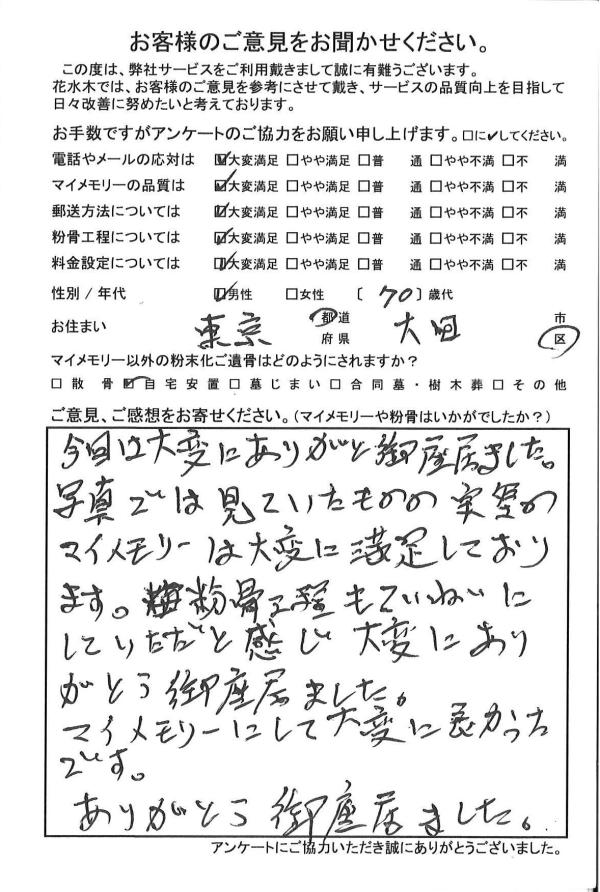 お客様のご意見をお聞かせください。
この度は、弊社サービスをご利用戴きまして誠に有難うございます。
花水木では、お客様のご意見を参考にさせて戴き、サービスの品質向上を目指して
日々改善に努めたいと考えております。
お手数ですがアンケートのご協力をお願い申し上げます。□に✔してください。
電話やメールの応対は ☑大変満足 □やや満足 □普 通 □やや不満 □不 満
マイメモリーの品質は ☑大変満足 □やや満足 □普 通 □やや不満 □不 満
郵送方法については ☑大変満足 □やや満足 □普 通 □やや不満 □不 満
粉骨工程については ☑大変満足 □やや満足 □普 通 □やや不満 □不 満
料金設定については ☑大変満足 □やや満足 □普 通 □やや不満 □不 満
性別 / 年代 ☑男性 □女性 〔 70 〕歳代
お住まい 東京 都道府県 大田 市区
マイメモリー以外の粉末化ご遺骨はどのようにされますか?
□散 骨 ☑自宅安置 □墓じまい □合同墓・樹木葬 □その他
ご意見、ご感想をお寄せください。(マイメモリーや粉骨はいかがでしたか?)
今回は大変にありがと御座居ました。
写真では見ていたものの実際の
マイメモリーは大変に満足しており
ます。粉骨工程もていねいに
していただと感じ大変にあり
がとう御座居ました。
マイメモリーにして大変に良かった
です。
ありがとう御座居ました。
アンケートにご協力いただき誠にありがとうございました。